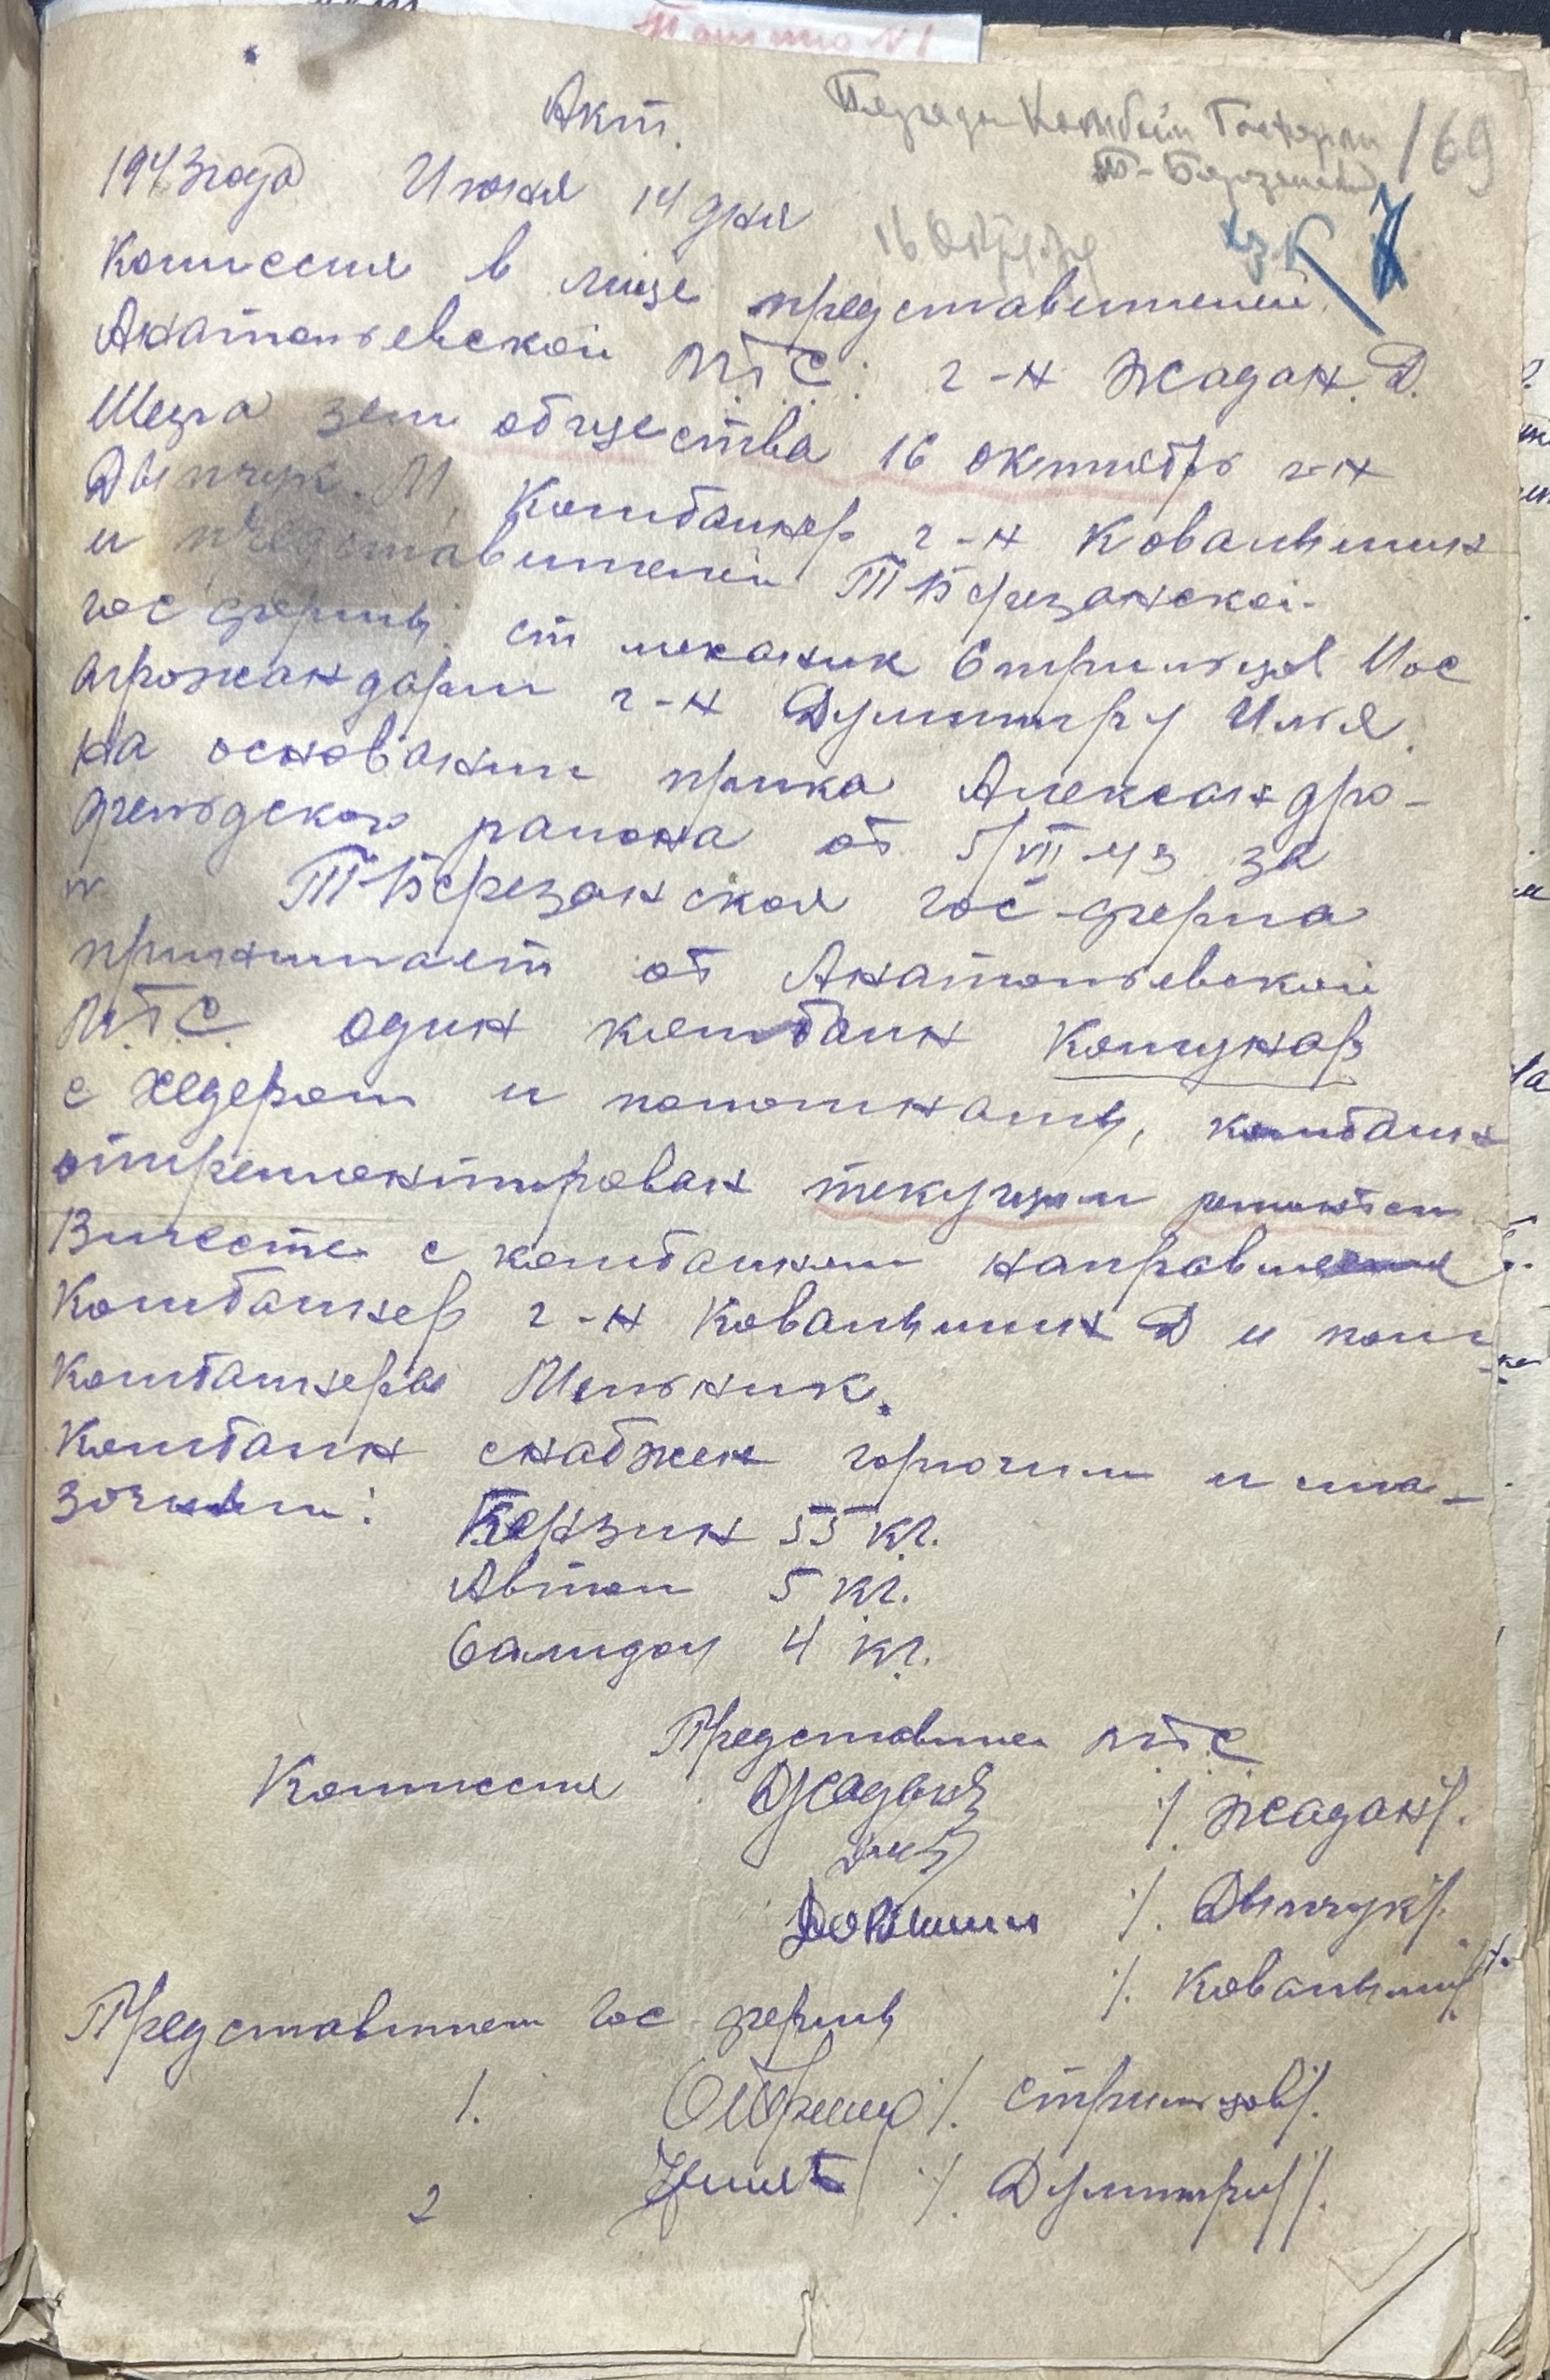 169
Акт.
1943 года Июля 14 дня
Комиссия в лице представителей
Анатольевской МТС: г-н Жадан. Д.
Шефа зем общества 16 октябрь г-н
Дымчук. М, Комбайнер г-н Ковалышин
и представителей Т Березанской
гос фермы: ст механик Стрильцов Иос
агрожандарм г-н Думитру Илья.
на основании прика Александро-
фельдского района от 5/VII-43 за
№ Т-Березанская гос-ферма
принимает от Анатольевской
М.Т.С. один комбайн Комунар
с хедером и полотнами, комбайн
отремонтирован текущем ремонтом
Вместе с комбайном направлен
Комбайнер г-н Ковалышин Д и пом
Комбайнера Мельник.
Комбайн снабжен горючим и сма-
зочным: Бензин 55 кг.
Автол 5 кг.
Салидол 4 кг.
Представител МТС
Комиссия Жадан /Жадан/.
/Дымчук/.
/Ковалышин/.
Представител гос фермы
1. /Стрильцов/.
2 /Думитру/.